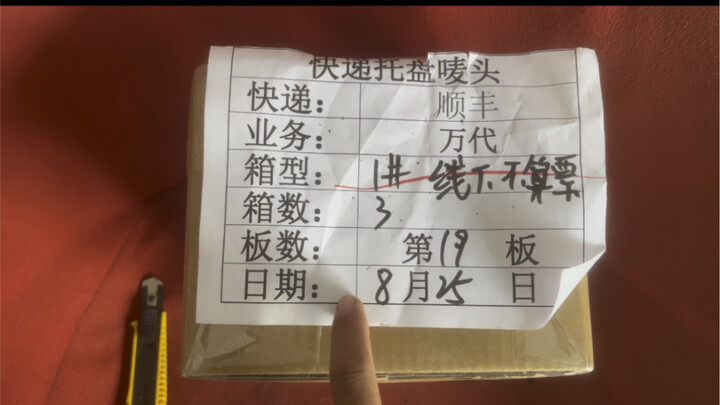 快递托盘唛头
快递： 顺丰
业务： 万代
箱型： 1# 线下不算票
箱数： 3
板数： 第19 板
日期： 8月25 日